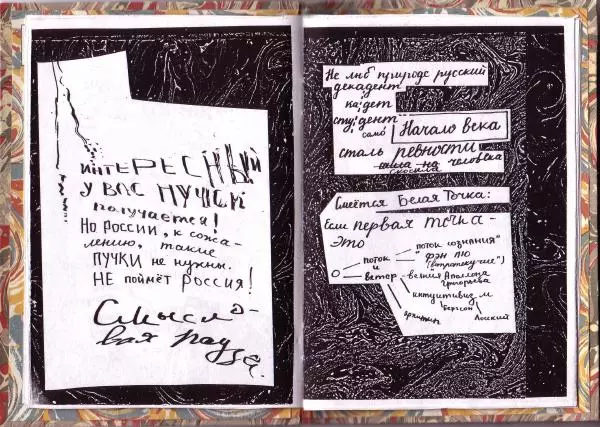 ИНТЕРЕСНЫЙ
У ВАС ПУЧОК
получается!
Но России, к сожа-
лению, такие
ПУЧКИ не нужны.
НЕ поймёт Россия!
Смысло-
вая пау
за.
Не люб природе русский
декадент
ка;дет
сту;дент
само Начало века
сталь ревности
на человека
скосила
Смеётся Белая Точка:
Если первая точка -
это
поток сознания"
поток
фэн лю
и
("
ветер
веяния Аполлона
Григорьева
интуитивизм
Бергсон
Лосский
архетип